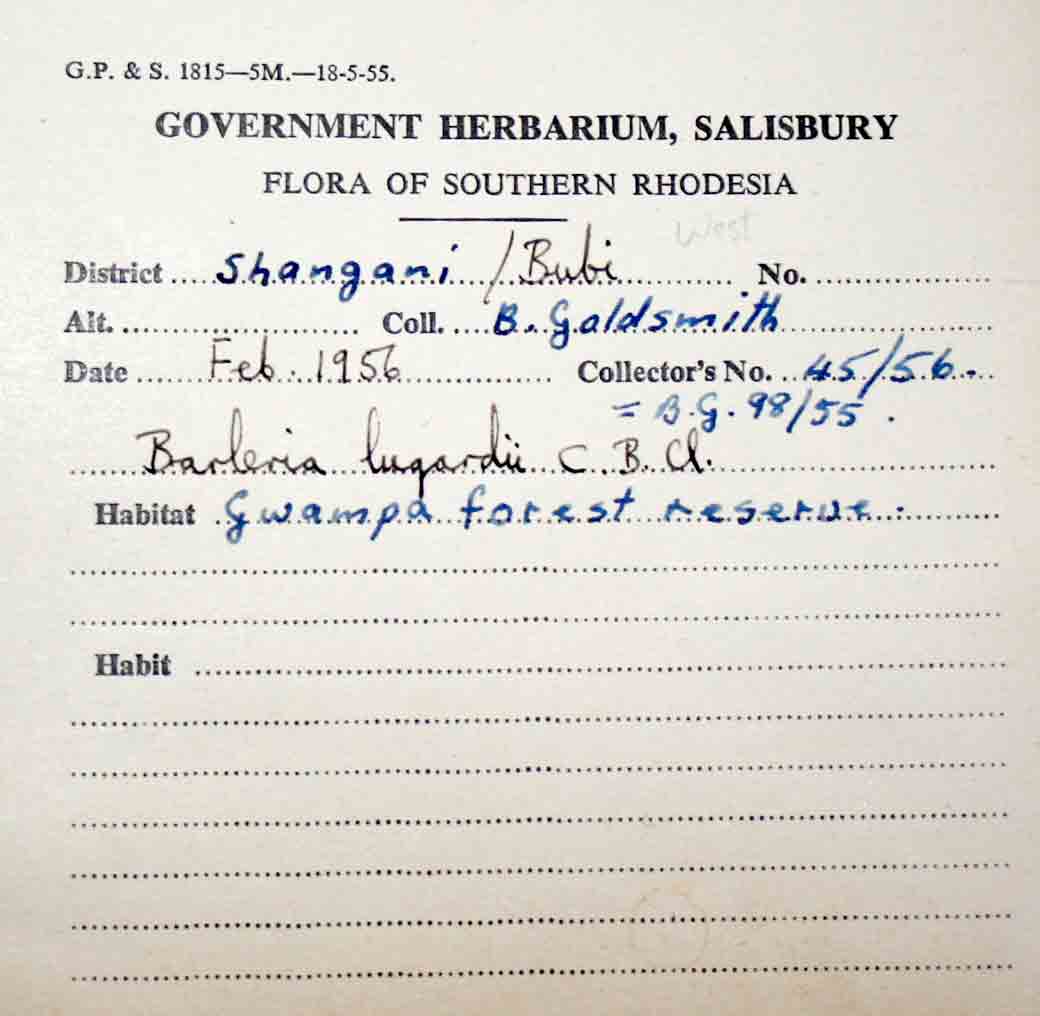 G.P. & S. 1815—5M.—18-5-55.
GOVERNMENT HERBARIUM, SALISBURY
FLORA OF SOUTHERN RHODESIA
West
District .... Shangani / Bubi ............ No. ..................
Alt. ........................ Coll. .... B. Goldsmith ..................
Date ...... Feb. 1956 .............. Collector's No. .. 45/56. ..
= B.G. 98/55.
Barleria lugardii C.B.Cl.
Habitat . Gwampa forest reserve.
Habit